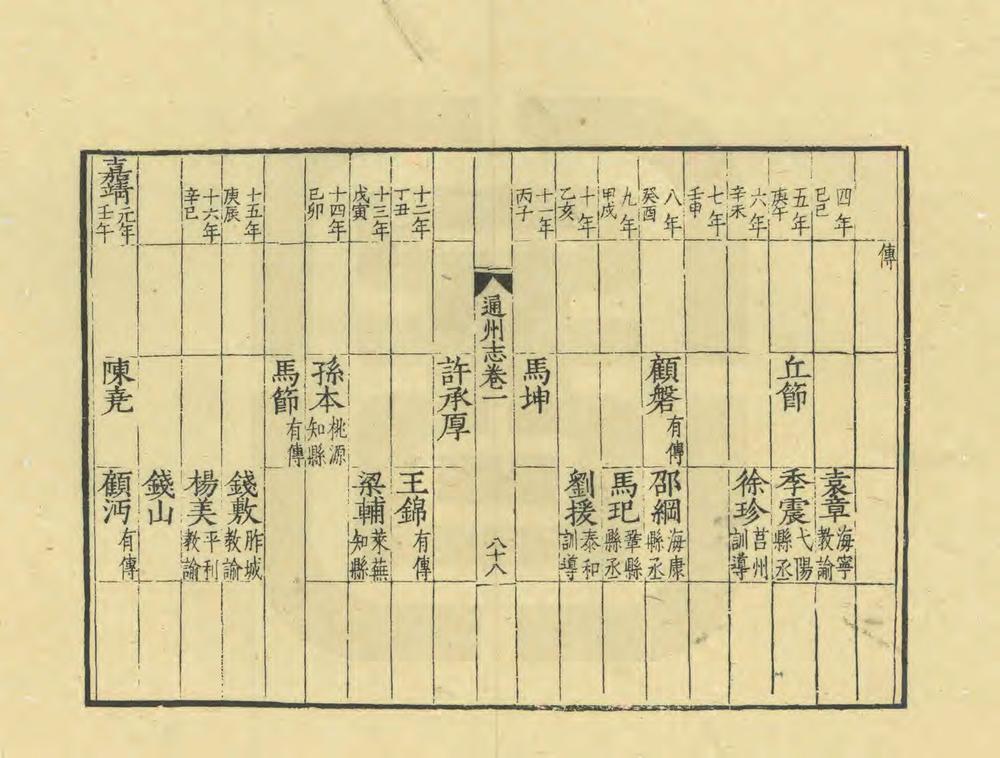 傳
四年己巳 袁章 海寧教諭
五年庚午 丘節 季震 弋陽縣丞
六年辛未 徐珍 莒州訓導
七年壬申
八年癸酉 顧磐 有傳 邵綱 海康縣丞
九年甲戌 馬𤣱 鞏縣縣丞
十年乙亥 劉援 泰和訓導
十一年丙子 馬坤
通州志卷一 八十八
許承厚
十二年丁丑 王錦 有傳
十三年戊寅 梁輔 萊蕪知縣
十四年己卯 孫本 桃源知縣
馬節 有傳
十五年庚辰 錢敷 胙城教諭
十六年辛巳 楊美 平利教諭
錢山
嘉靖元年壬午 陳堯 顧沔 有傳